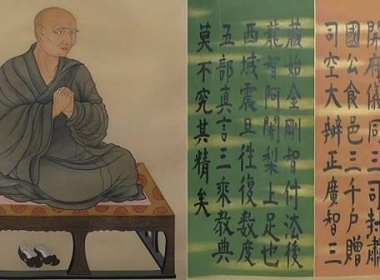 開府儀同三司封肅
國公食邑三千戶贈
司空大辨正廣智三
藏始金剛智付法後
龍智阿闍梨上足也
西域震旦往復數度
五部真言三乘教典
莫不究其精矣